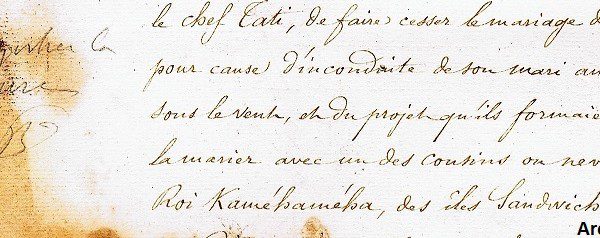 le chef Tati, de faire cesser le mariage d
pour cause d'inconduite de son mari au
sous le vent, et du projet qu'ils formaie
la marier avec un des cousins ou nev
Roi Kaméhaméha, des îles Sandwich
Ar